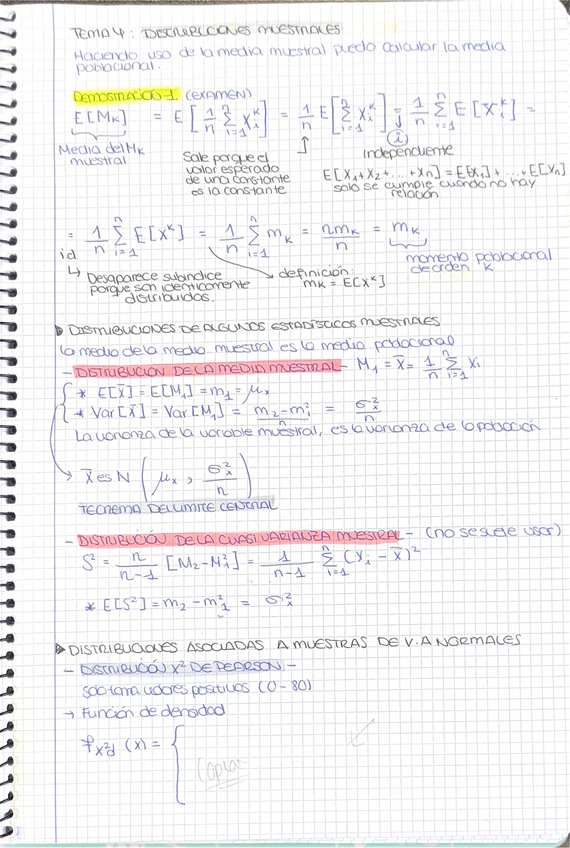 TEMA 4: DISTRIBUCIONES MUESTRALES
Haciendo uso de la media muestral puedo calcular la media
poblacional.
DEMOSTRACIÓN 1 (EXAMEN)
E[M_K] = E[1/n Σ_{i=1}^{n} X_i^K] = 1/n E[Σ_{i=1}^{n} X_i^K] = 1/n Σ_{i=1}^{n} E[X_i^K] =
i
Media del M_K
muestral
Sale porque el
valor esperado
de una constante
es la constante
independiente
E[X_1+X_2+...+X_n] = E[X_1]+...+E[X_n]
solo se cumple cuando no hay
relación
= 1/n Σ_{i=1}^{n} E[X^K] = 1/n Σ_{i=1}^{n} m_K = n m_K/n = m_K
id
↳ Desaparece subíndice
porque son idénticamente
distribuidos.
definición:
m_K = E[X^K]
momento poblacional
de orden K
▶ DISTRIBUCIONES DE ALGUNOS ESTADÍSTICOS MUESTRALES
la media de la media muestral es la media poblacional
- DISTRIBUCIÓN DE LA MEDIA MUESTRAL - M_1 = X̄ = 1/n Σ_{i=1}^{n} X_i
* E[X̄] = E[M_1] = m_1 = μ_x
* Var[X̄] = Var[M_1] = (m_2 - m_1^2)/n = σ_x^2/n
La varianza de la variable muestral, es la varianza de la población
→ X̄ es N (μ_x, σ_x^2/n)
TEOREMA DEL LÍMITE CENTRAL
- DISTRIBUCIÓN DE LA CUASIVARIANZA MUESTRAL - (no se suele usar)
S^2 = n/(n-1) [M_2 - M_1^2] = 1/(n-1) Σ_{i=1}^{n} (X_i - X̄)^2
* E[S^2] = m_2 - m_1^2 = σ_x^2
▶ DISTRIBUCIONES ASOCIADAS A MUESTRAS DE V.A NORMALES
- DISTRIBUCIÓN X^2 DE PEARSON -
solo toma valores positivos (0-80)
→ Función de densidad
f_{X^2 d} (x) = {
Copiar